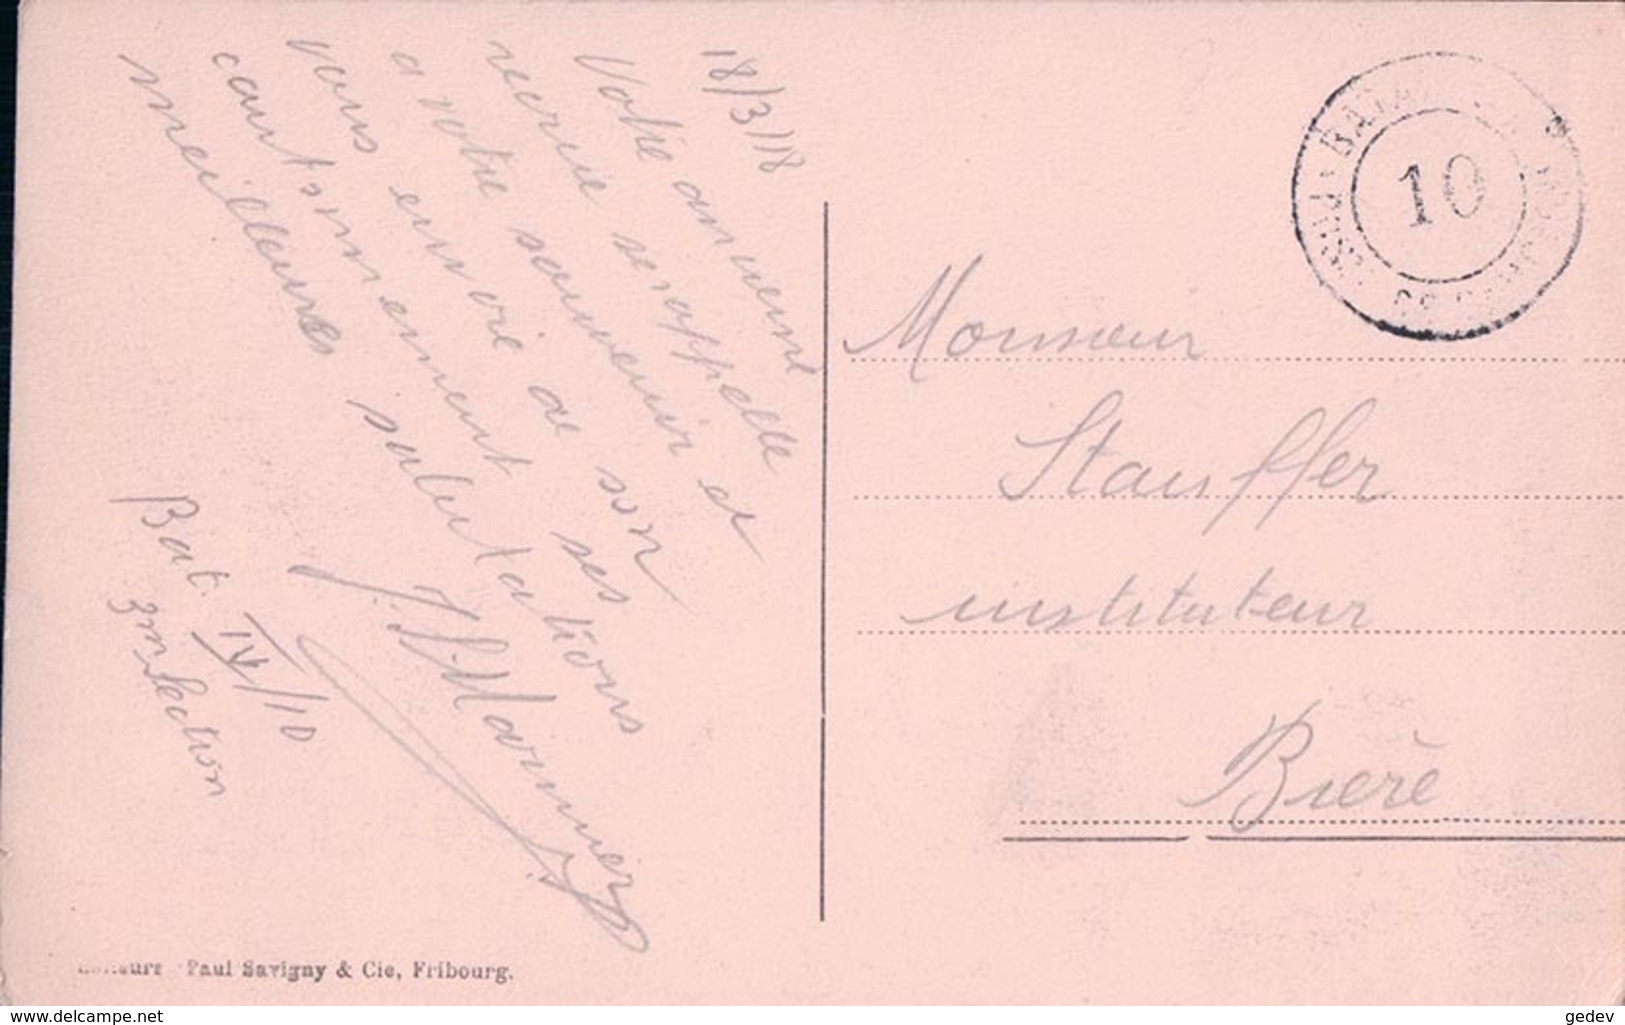 18/3/18
Votre ancienne
recrue se rappelle
a votre souvenir et
vous envoie de son
cantonnement ses
meilleures salutations
J. Marmier
Bat. IV/10
3me Section
Monsieur
Stauffer
instituteur
Bière
10
Editeurs Paul Savigny & Cie, Fribourg.
www.delcampe.net
gedev